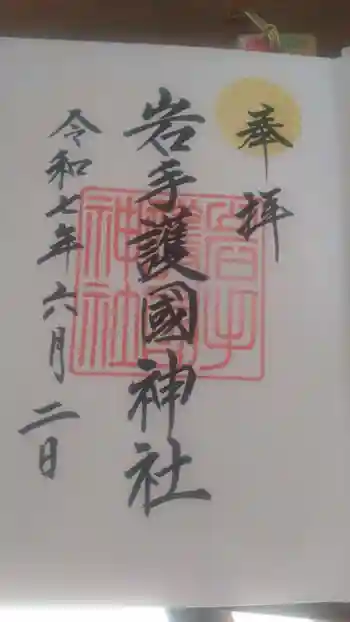 奉拝
岩手護國神社
令和七年六月二日
岩手護國神社